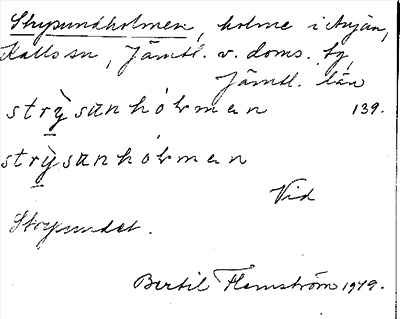 Strysundholmen, holme i Anjan,
Kalls sn, Jämtl. v. doms. tg,
Jämtl. län
strỳsanhólmen 139.
strỳsanhólmen
Vid
Strysundet.
Bertil Flemström 1979.